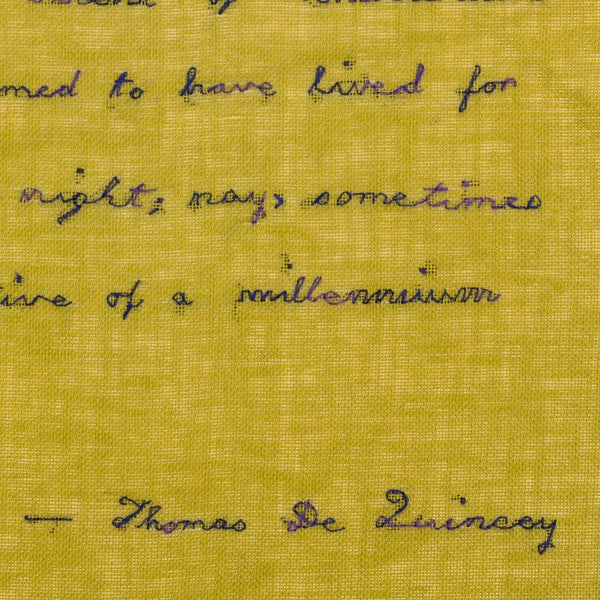 of
med to have lived for
night; nay, sometimes
tive of a millennium
— Thomas De Quincey